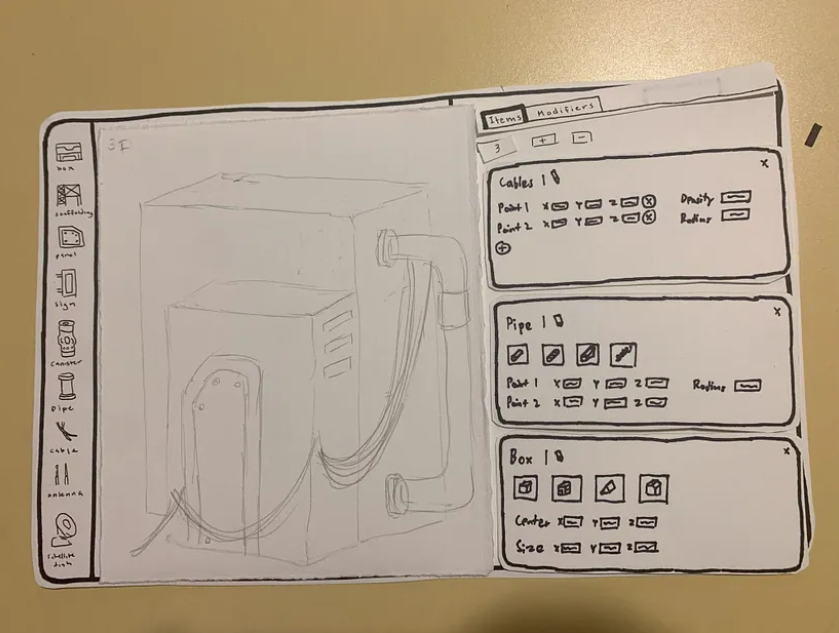 box
scaffolding
panel
sign
canister
pipe
cable
antenna
satellite
dish
3D
Items Modifiers
3 + −
Cables 1 x
Point 1 X Y Z x Density
Point 2 X Y Z x Radius
+
Pipe 1 x
Point 1 X Y Z Radius
Point 2 X Y Z
Box 1 x
Center X Y Z
Size X Y Z